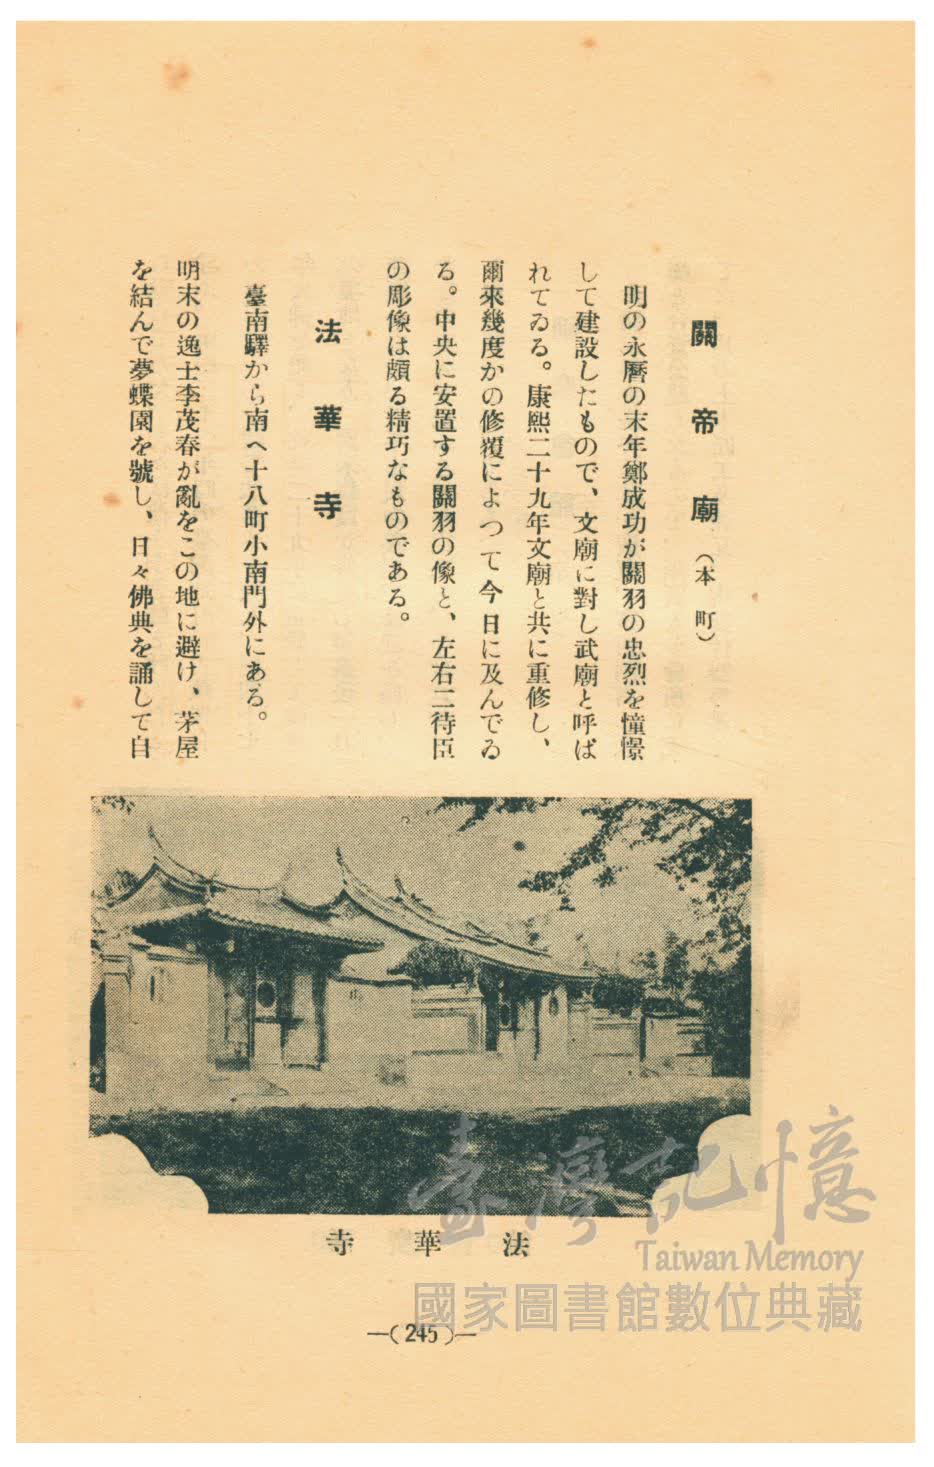 關帝廟（本町）
明の永曆の末年鄭成功が關羽の忠烈を憧憬
して建設したもので、文廟に對し武廟と呼ば
れてゐる。康熙二十九年文廟と共に重修し、
爾來幾度かの修覆によつて今日に及んでゐ
る。中央に安置する關羽の像と、左右二待臣
の彫像は頗る精巧なものである。
法華寺
臺南驛から南へ十八町小南門外にある。
明末の逸士李茂春が亂をこの地に避け、茅屋
を結んで夢蝶園を號し、日々佛典を誦して自
法華寺
—(245)—
臺灣記憶
Taiwan Memory
國家圖書館數位典藏